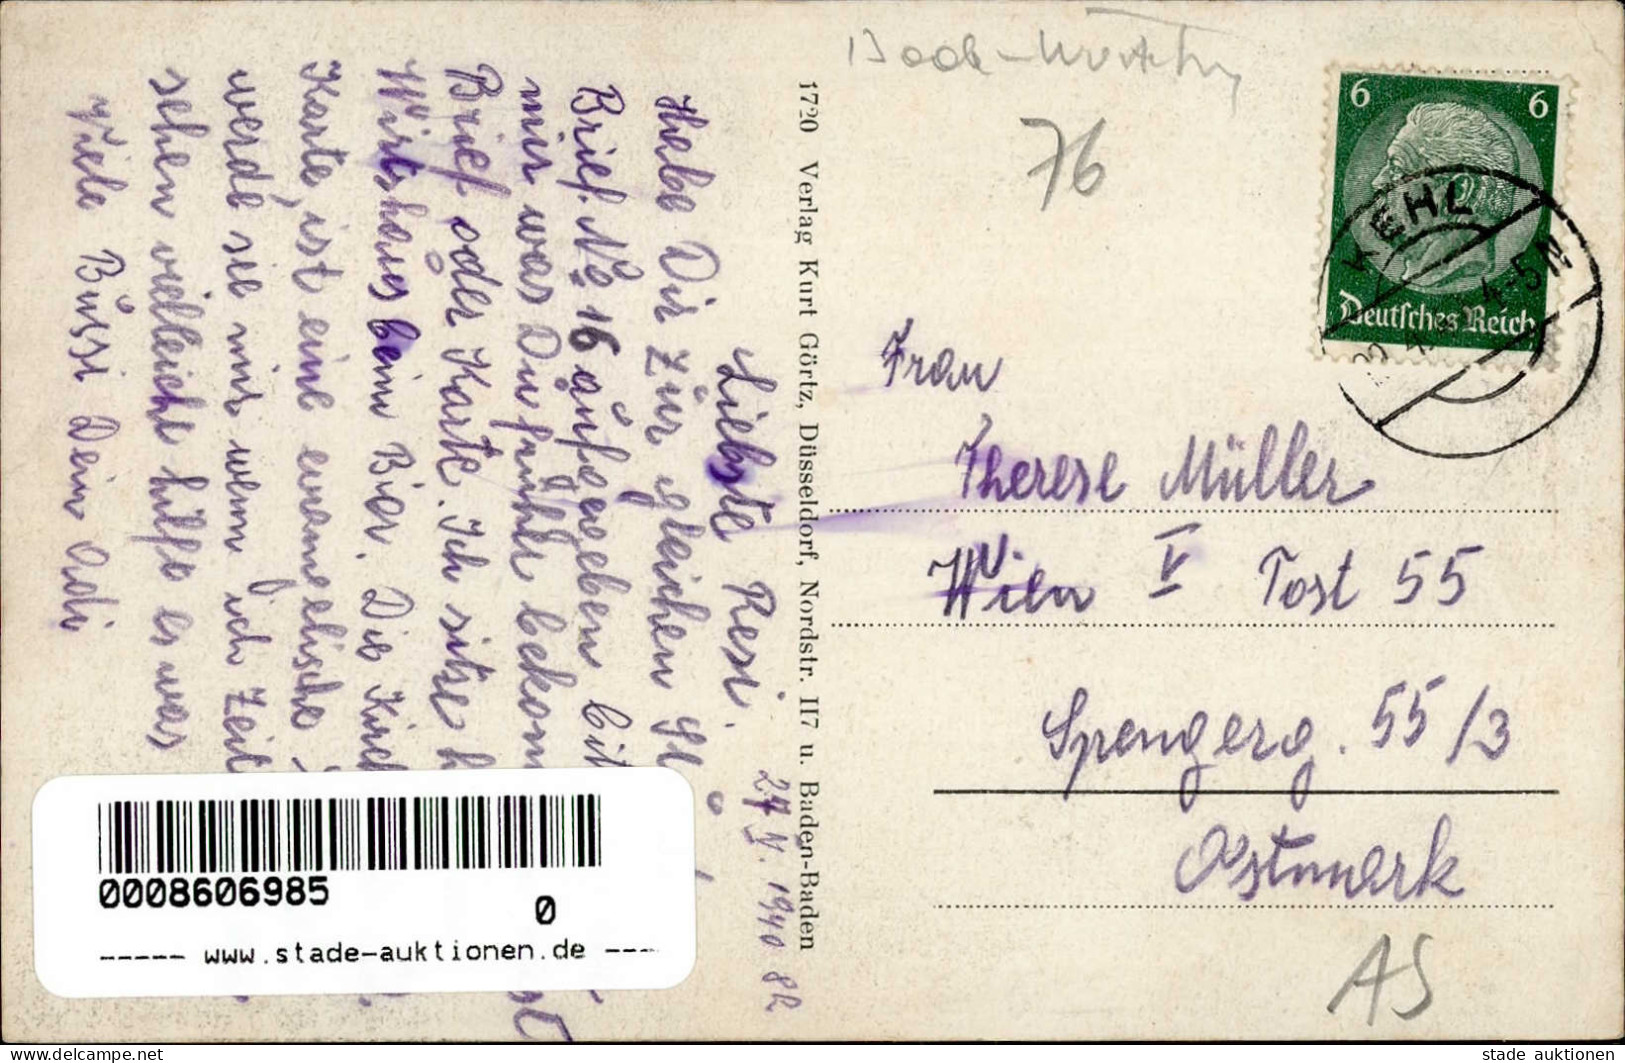 76
6 6
Deutsches Reich
KEHL
4-5N
1720 Verlag Kurt Görtz, Düsseldorf, Nordstr. 117 u. Baden-Baden
Frau
Therese Müller
Wien V Post 55
Spengerg. 55/3
Ostmark
AS
1940
Liebste Resi.
Habe Dir zur gleichen
Brief. No 16 aufgegeben
mir was Du früher
Brief oder Karte. Ich sitze
Wirtshaus beim Bier. Die
Karte, ist eine evangelische
werde sie mir wenn ich Zeit
sehen vielleicht hilfs es was
Viele Bussi Dein Adi
0008606985
0
----- www.stade-auktionen.de ----
stade auktionen
https://www.delcampe.net